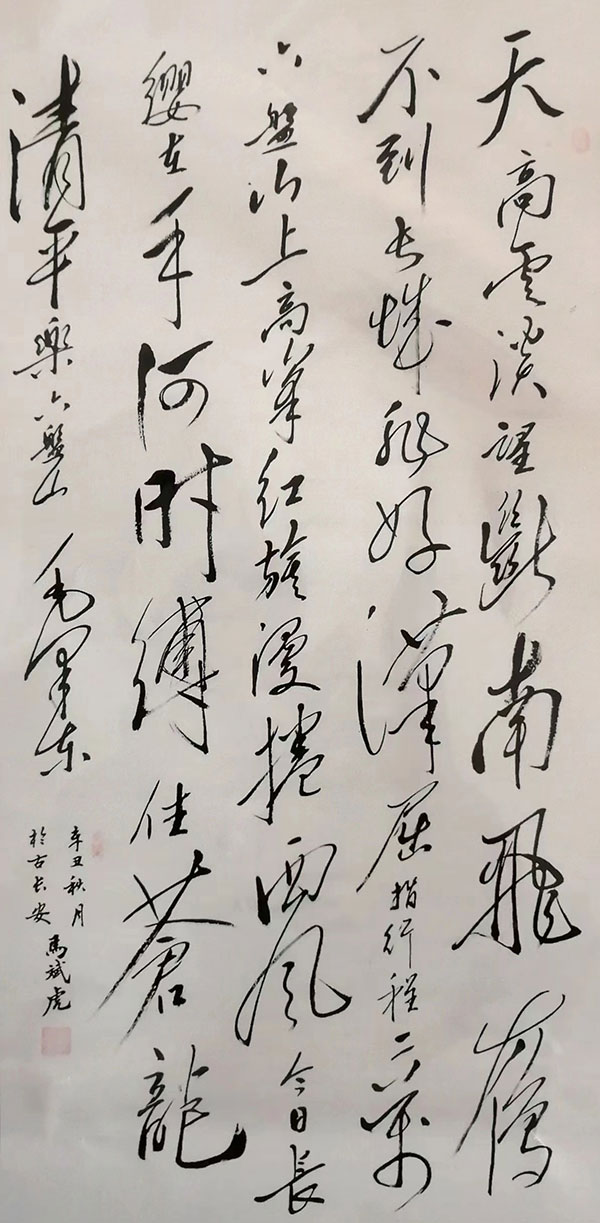 天高雲淡望斷南飛雁
不到長城非好漢屈指行程二萬
六盤山上高峯紅旗漫捲西風今日長
纓在手何時縛住蒼龍
清平樂六盤山 毛澤東
辛丑秋月
於古長安 馬斌虎